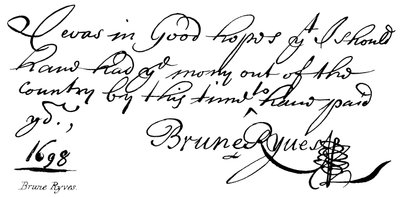 I was in Good hopes yt I should
have had ye mony out of the
country by this time to have paid
yo.,
Brune Ryves
1698
Brune Ryves.